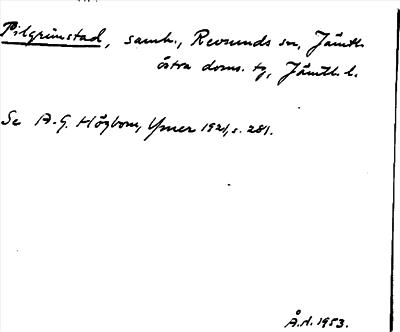 Pilgrimstad, samh., Revsunds sn, Jämtl.
östra doms. tg, Jämtl. l.
Se A.G. Högbom, Ymer 1921, s. 281.
Å.d. 1953.